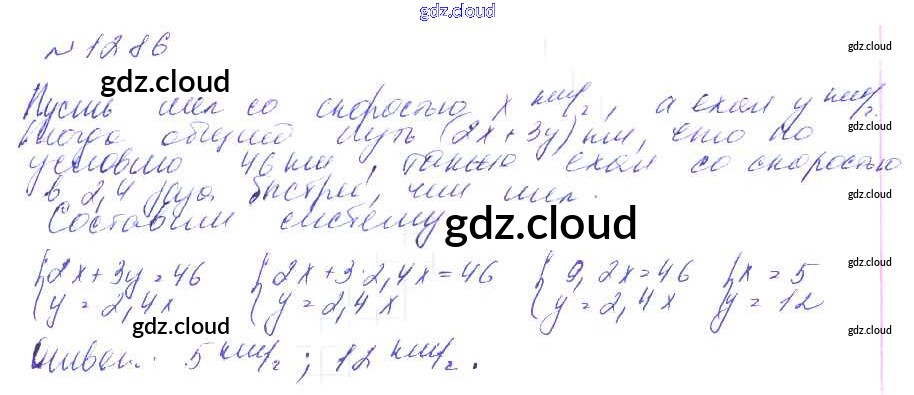 gdz.cloud
№ 1286
gdz.cloud
gdz.cloud
Пусть шел со скоростью x км/г, а ехал y км/г.
gdz.cloud
тогда общий путь (2x+3y) км, что по
gdz.cloud
условию 46 км, также ехал со скоростью
в 2,4 раза быстрей, чем шел.
gdz.cloud
Составим систему
gdz.cloud
gdz.cloud
{2x+3y=46 {2x+3·2,4x=46 {9,2x=46 {x=5
y=2,4x y=2,4x y=2,4x y=12
gdz.cloud
gdz.cloud
Ответ: 5 км/г; 12 км/г.